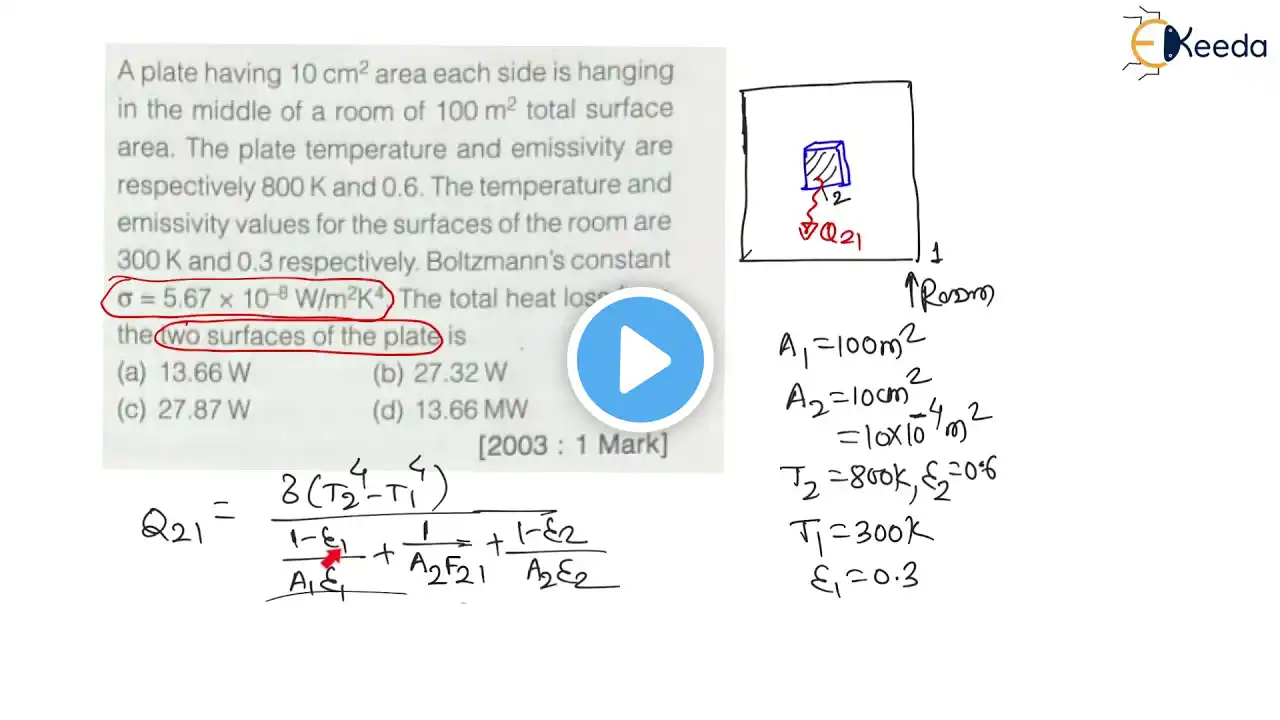 Keeda
A plate having 10 cm² area each side is hanging
in the middle of a room of 100 m² total surface
area. The plate temperature and emissivity are
respectively 800 K and 0.6. The temperature and
emissivity values for the surfaces of the room are
300 K and 0.3 respectively. Boltzmann's constant
σ = 5.67 × 10⁻⁸ W/m²K⁴. The total heat loss
the two surfaces of the plate is
(a) 13.66 W (b) 27.32 W
(c) 27.87 W (d) 13.66 MW
[2003 : 1 Mark]
Q₂₁ = 3(T₂⁴-T₁⁴)
1-ε₁ / A₁ε₁ + 1 / A₂F₂₁ + 1-ε₂ / A₂ε₂
2
Q₂₁
1
↑Room
A₁=100m²
A₂=10cm²
=10×10⁻⁴m²
T₂=800K, ε₂=0.6
T₁=300K
ε₁=0.3